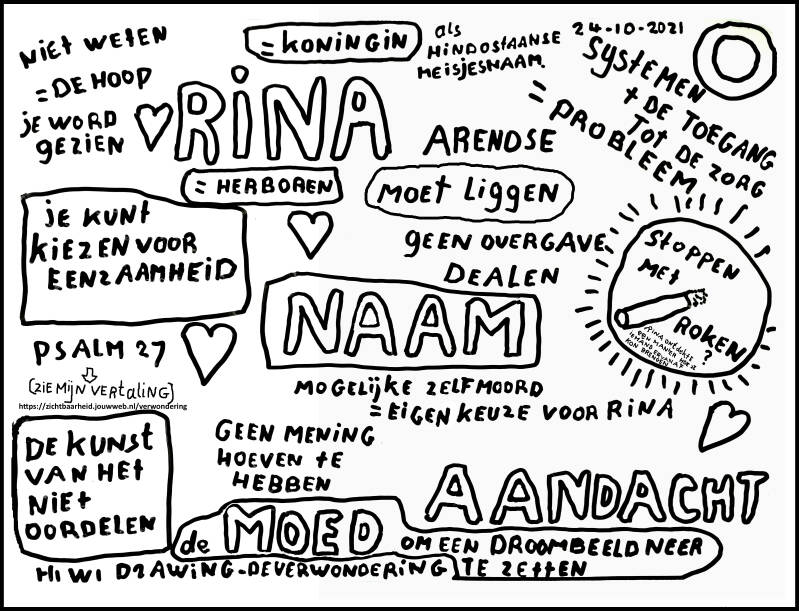 NIET WETEN
= DE HOOP
je WORD
gEZIEN
= KONINGIN
als
HINDOSTAANSE
MEISJESNAAM.
24-10-2021
SYSTEMEN
+ DE TOEGANG
TOT DE ZORG
= PROBLEEM
RINA
ARENDSE
= HERBOREN
MOET LIGGEN
je KUNT
KIEZEN VOOR
EENZAAMHEID
gEEN OVERGAVE
DEALEN
STOPPEN
MET
ROKEN
?
NAAM
PSALM 27
(ZIE MIJN VERTALING)
https://zichtbaarheid.jouwweb.nl/verwondering
MOGELIJKE ZELFMOORD
= EIGEN KEUZE VOOR RINA
DE KUNST
VAN HET
NIET
OORDELEN
GEEN MENING
HOEVEN TE
HEBBEN
AANDACHT
de MOED OM EEN DROOMBEELD NEER
TE ZETTEN
HIWI DRAWING-DEVERWONDERING